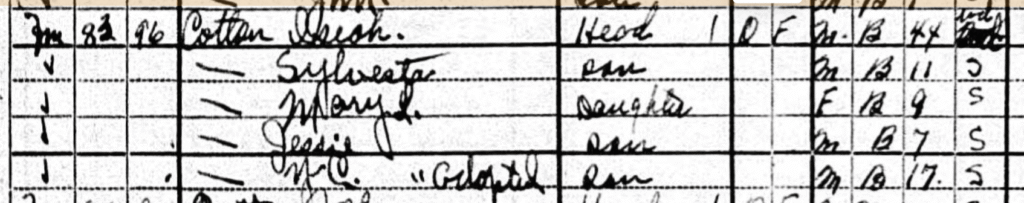 Fm 83 96 Cotton Isiah. Head 1 O F M. B 44 wd
✓ — Sylvesta son M B 11 S
✓ — Mary L. Daughter F B 9 S
✓ — Jessie son M B 7 S
✓ — "adopted son M B 17. S